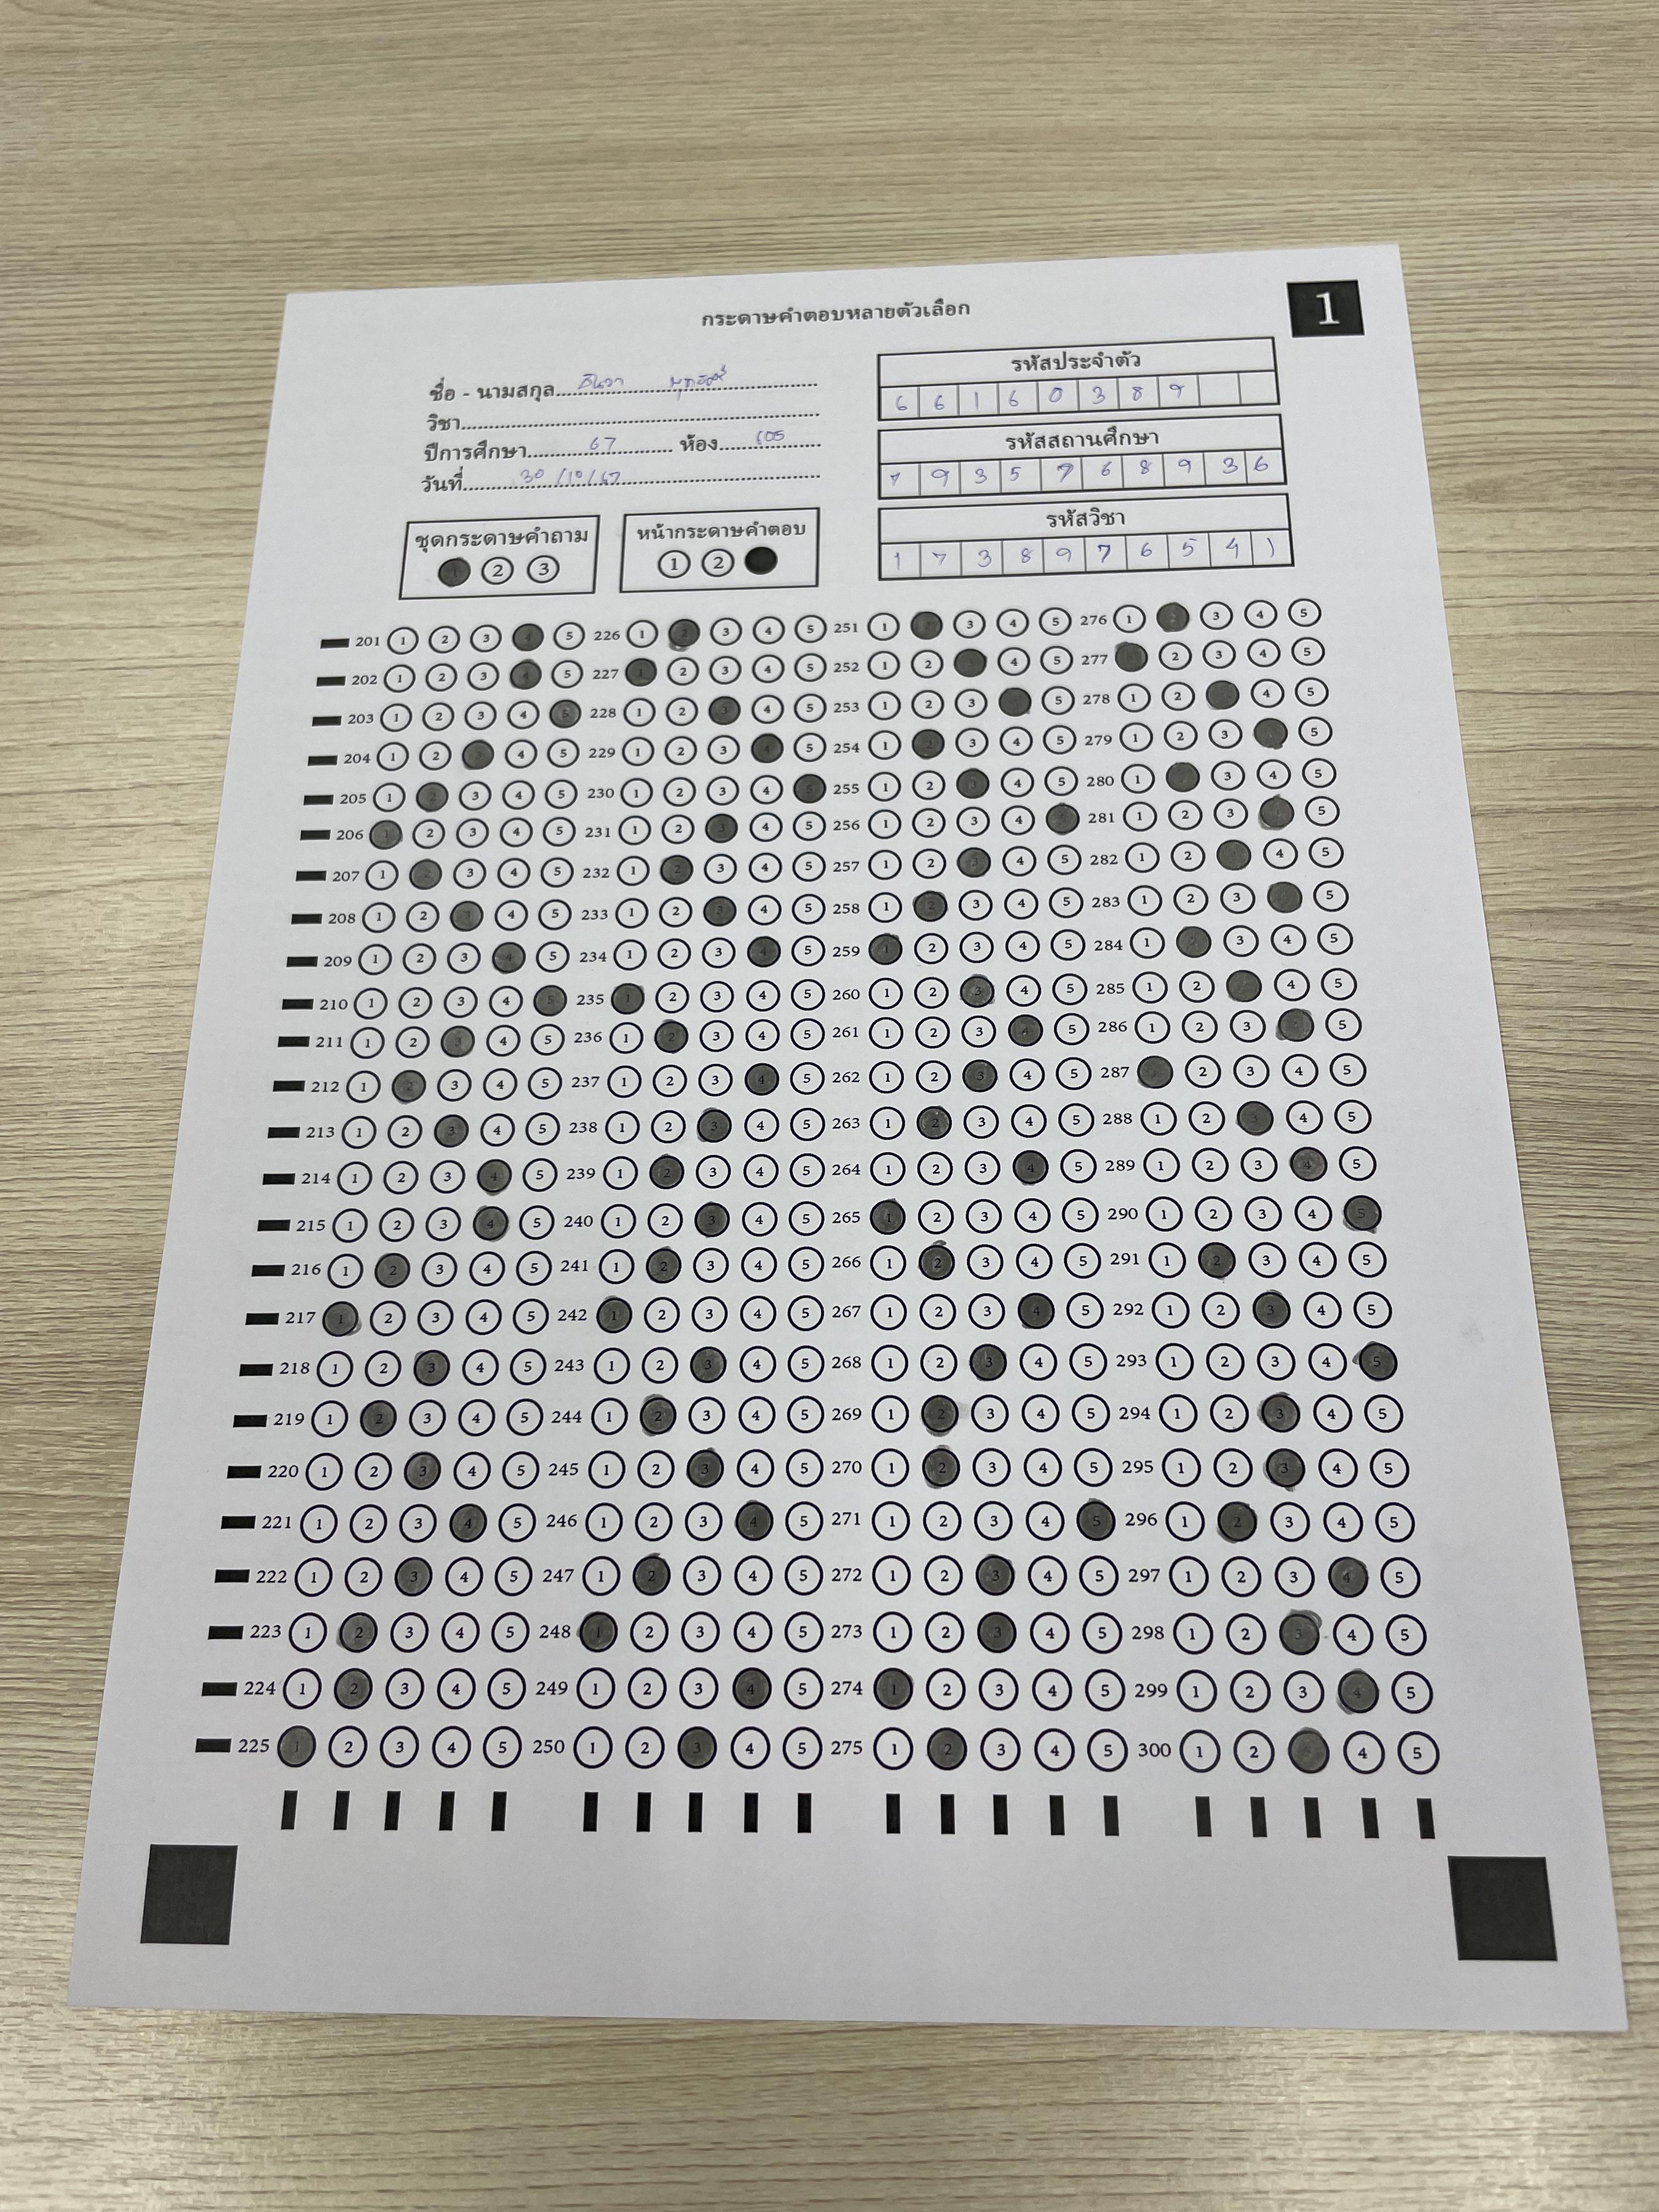 กระดาษคำตอบหลายตัวเลือก
1
ชื่อ - นามสกุล ธันวา
วิชา
ปีการศึกษา 67 ห้อง 605
วันที่ 30/10/67
รหัสประจำตัว
6 6 1 6 0 3 8 9
รหัสสถานศึกษา
7 9 3 5 7 6 8 9 3 6
รหัสวิชา
1 7 3 8 9 7 6 5 4 1
ชุดกระดาษคำถาม
1 2 3
หน้ากระดาษคำตอบ
1 2
201 1 2 3 4 5 226 1 2 3 4 5 251 1 2 3 4 5 276 1 2 3 4 5
202 1 2 3 4 5 227 1 2 3 4 5 252 1 2 3 4 5 277 1 2 3 4 5
203 1 2 3 4 5 228 1 2 3 4 5 253 1 2 3 4 5 278 1 2 3 4 5
204 1 2 3 4 5 229 1 2 3 4 5 254 1 2 3 4 5 279 1 2 3 4 5
205 1 2 3 4 5 230 1 2 3 4 5 255 1 2 3 4 5 280 1 2 3 4 5
206 1 2 3 4 5 231 1 2 3 4 5 256 1 2 3 4 5 281 1 2 3 4 5
207 1 2 3 4 5 232 1 2 3 4 5 257 1 2 3 4 5 282 1 2 3 4 5
208 1 2 3 4 5 233 1 2 3 4 5 258 1 2 3 4 5 283 1 2 3 4 5
209 1 2 3 4 5 234 1 2 3 4 5 259 1 2 3 4 5 284 1 2 3 4 5
210 1 2 3 4 5 235 1 2 3 4 5 260 1 2 3 4 5 285 1 2 3 4 5
211 1 2 3 4 5 236 1 2 3 4 5 261 1 2 3 4 5 286 1 2 3 4 5
212 1 2 3 4 5 237 1 2 3 4 5 262 1 2 3 4 5 287 1 2 3 4 5
213 1 2 3 4 5 238 1 2 3 4 5 263 1 2 3 4 5 288 1 2 3 4 5
214 1 2 3 4 5 239 1 2 3 4 5 264 1 2 3 4 5 289 1 2 3 4 5
215 1 2 3 4 5 240 1 2 3 4 5 265 1 2 3 4 5 290 1 2 3 4 5
216 1 2 3 4 5 241 1 2 3 4 5 266 1 2 3 4 5 291 1 2 3 4 5
217 1 2 3 4 5 242 1 2 3 4 5 267 1 2 3 4 5 292 1 2 3 4 5
218 1 2 3 4 5 243 1 2 3 4 5 268 1 2 3 4 5 293 1 2 3 4 5
219 1 2 3 4 5 244 1 2 3 4 5 269 1 2 3 4 5 294 1 2 3 4 5
220 1 2 3 4 5 245 1 2 3 4 5 270 1 2 3 4 5 295 1 2 3 4 5
221 1 2 3 4 5 246 1 2 3 4 5 271 1 2 3 4 5 296 1 2 3 4 5
222 1 2 3 4 5 247 1 2 3 4 5 272 1 2 3 4 5 297 1 2 3 4 5
223 1 2 3 4 5 248 1 2 3 4 5 273 1 2 3 4 5 298 1 2 3 4 5
224 1 2 3 4 5 249 1 2 3 4 5 274 1 2 3 4 5 299 1 2 3 4 5
225 1 2 3 4 5 250 1 2 3 4 5 275 1 2 3 4 5 300 1 2 3 4 5